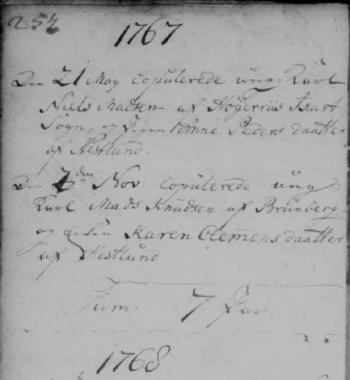 252
1767
Den 21 May copulerede ung Karl
Niels Madsen af Høgerriis
Sogn, og Pigen Anne Peders daatter
af Nestlund.
Den 7 den Nov: copulerede ung
Karl Mads Knudsen af Brunberg
og Enken Karen Clemens daatter
af Nestlund
Sum. 7 Par.
1768